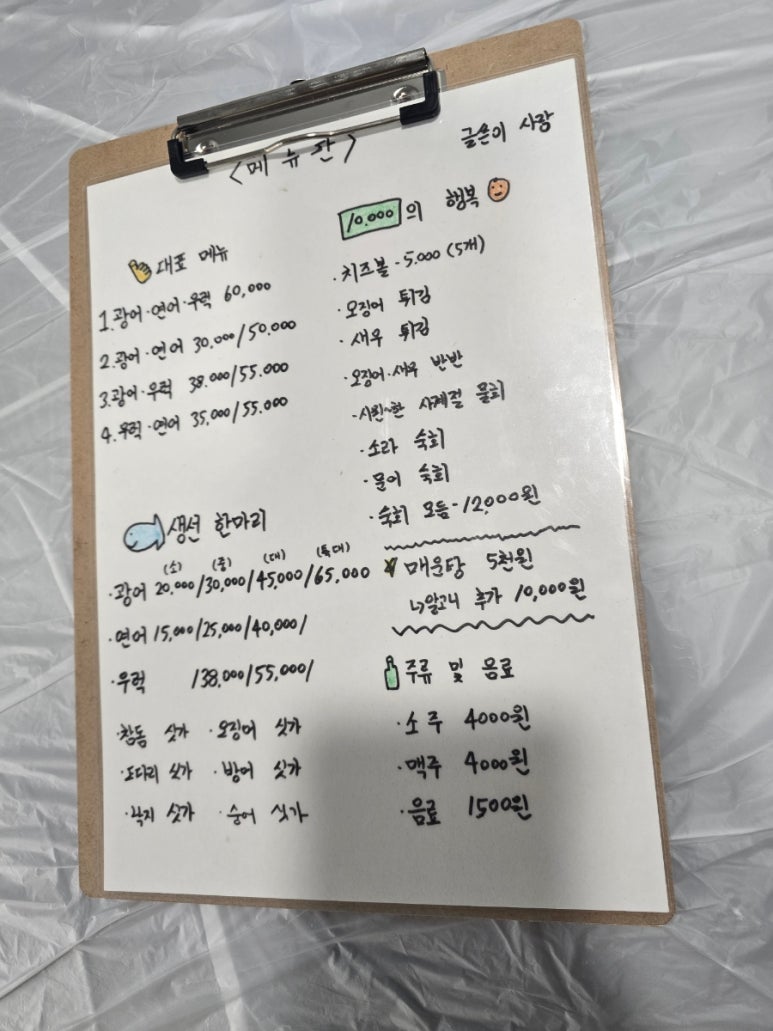 <메뉴판>
글쓴이 사장
대표 메뉴
1. 광어·연어·우럭 60,000
2. 광어·연어 30.000/50.000
3. 광어·우럭 38.000/55.000
4. 우럭·연어 35,000/55.000
생선 한마리
(소) (중) (대) (특대)
·광어 20.000/30,000/45,000/65,000
·연어 15,000/25,000/40,000/
·우럭 /38.000/55,000/
·참돔 싯가 ·오징어 싯가
·도다리 싯가 ·방어 싯가
·낙지 싯가 ·숭어 싯가
10.000의 행복
·치즈볼 - 5.000 (5개)
·오징어 튀김
·새우 튀김
·오징어·새우 반반
·시원~한 사계절 물회
·소라 숙회
·문어 숙회
·숙회 모듬 - 12,000원
매운탕 5천원
추가 10,000원
주류 및 음료
·소주 4000원
·맥주 4000원
·음료 1500원